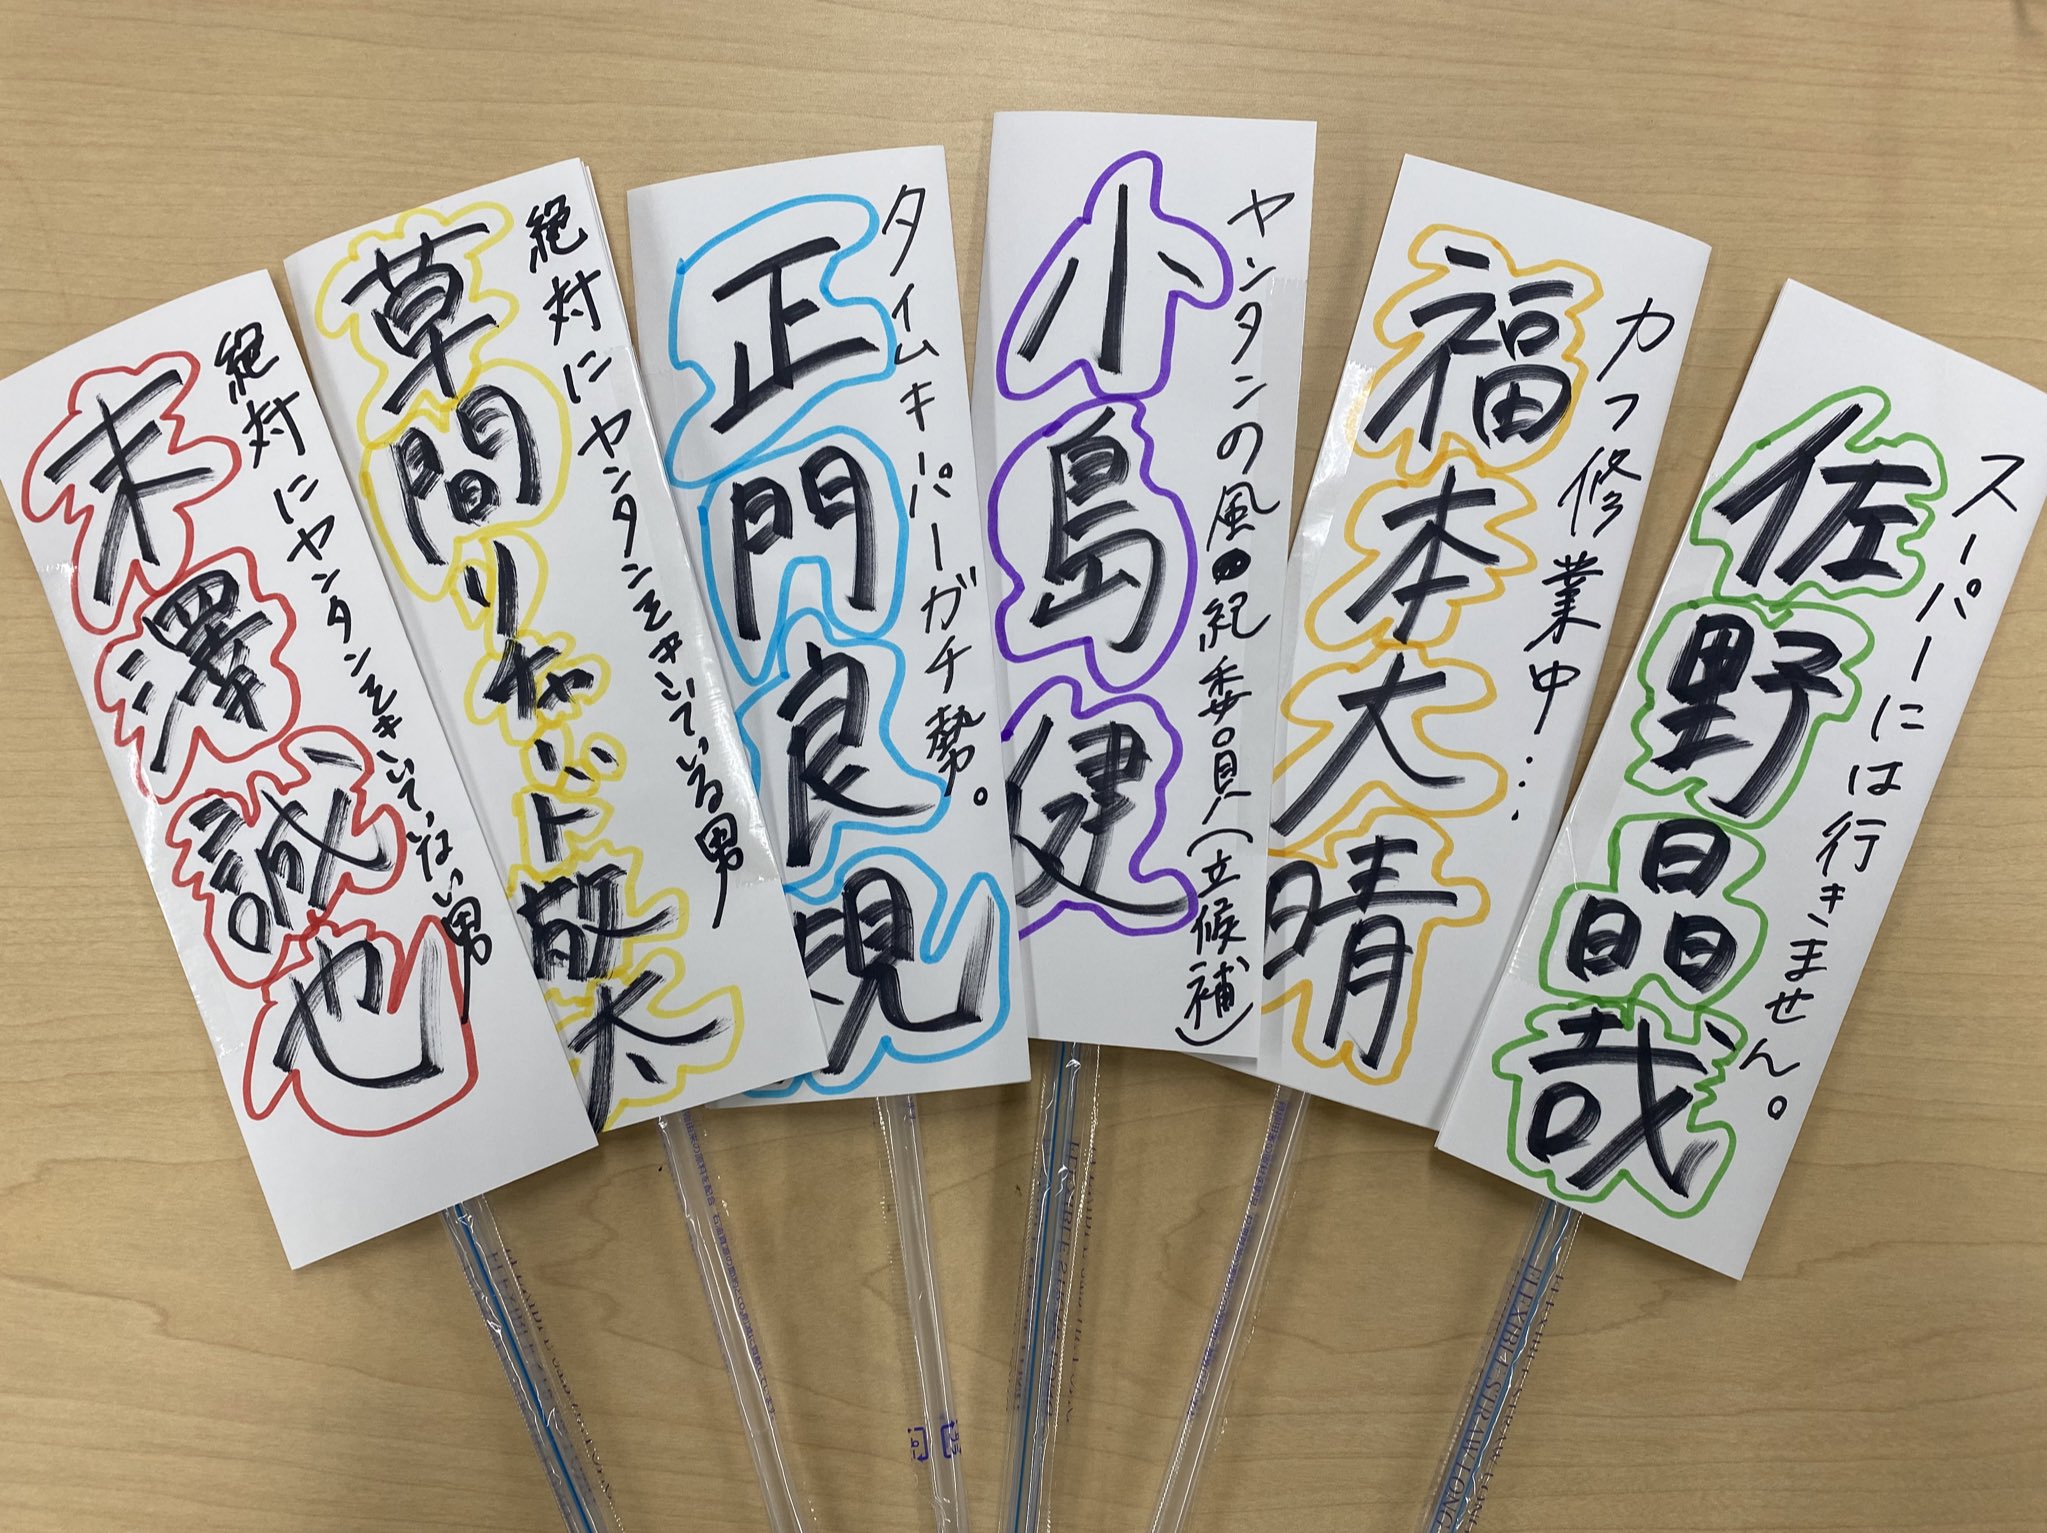 末澤誠也
絶対にヤンタンをきいていない男
草間リチャード敬太
絶対にヤンタンをきいている男
正門良規
タイムキーパーガチ勢。
小島健
ヤンタンの風紀委員(立候補)
福本大晴
カフ修業中...
佐野晶哉
スーパーには行きません。
FLEXIBLE STRAW LONG